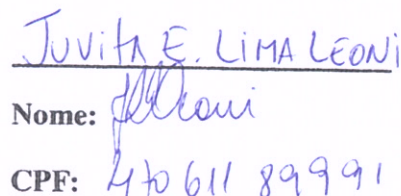 JUVITA E. LIMA LEONI
Nome:
CPF: 470 611 899 91